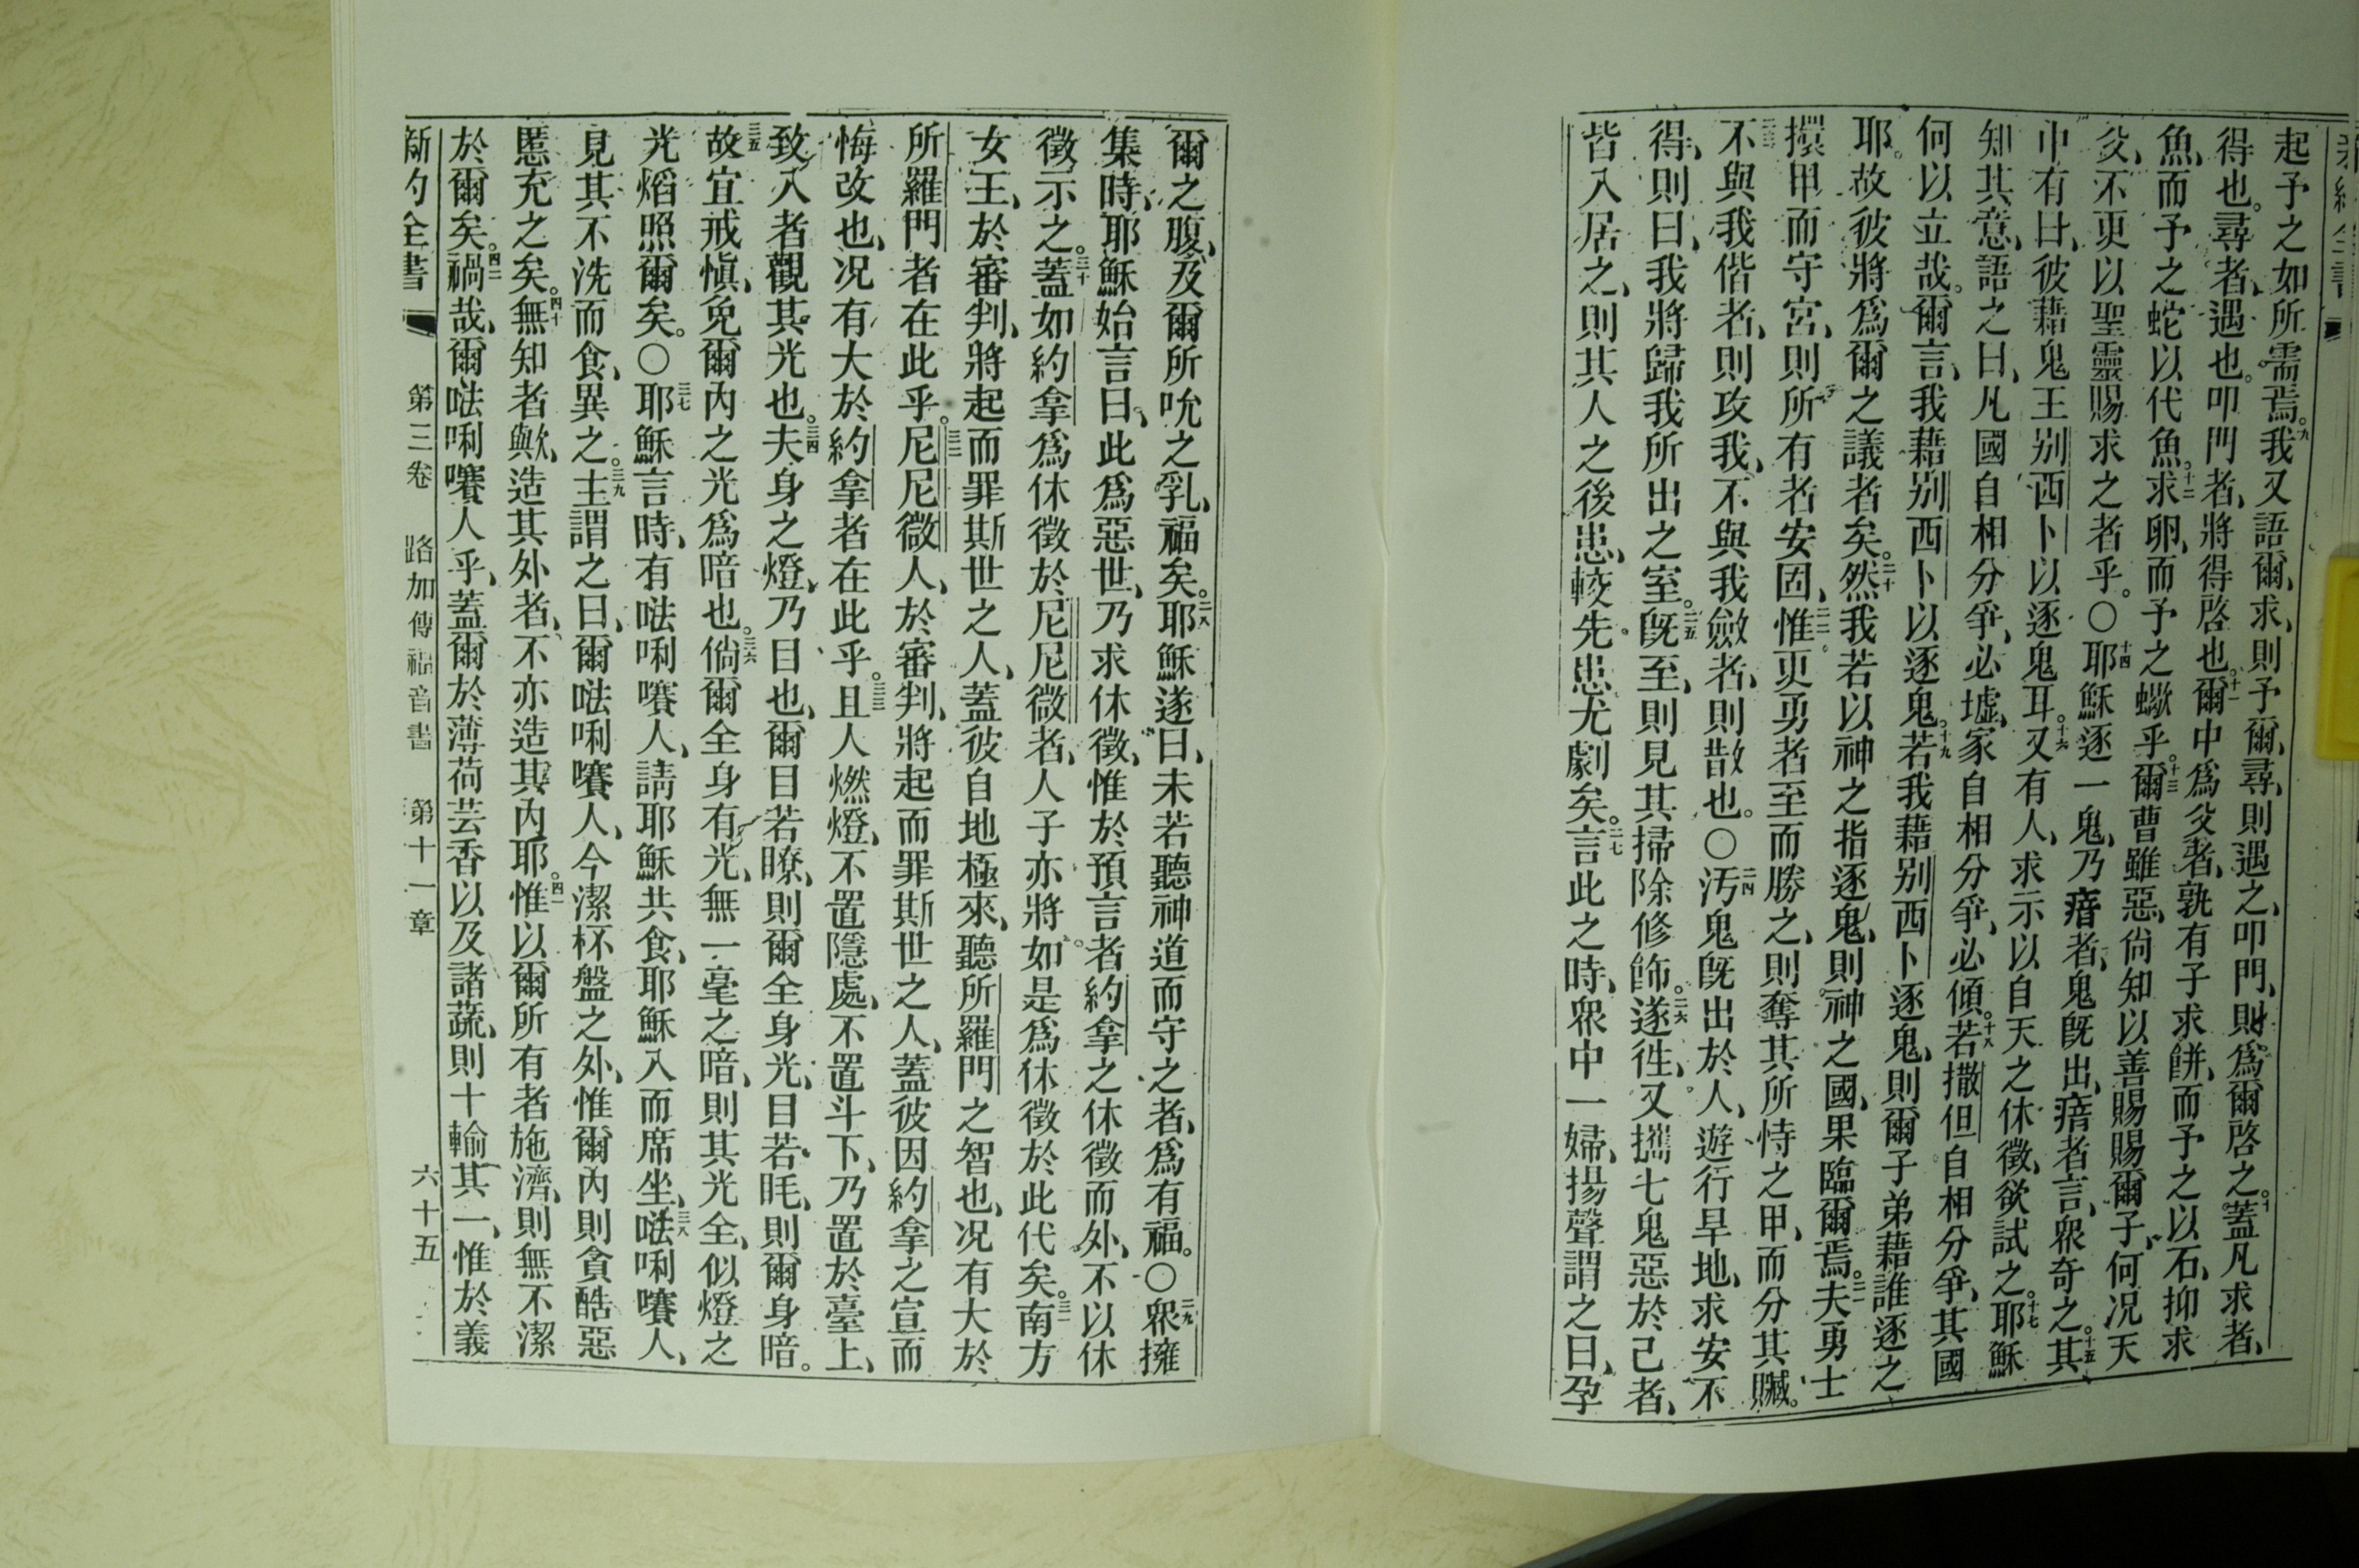 起予之如所需焉。九我又語爾、求、則予爾、尋、則遇之、叩門、則爲爾啓之。十蓋凡求者、
得也。尋者、遇也。叩門者、將得啓也。十一爾中爲父者、孰有子求餅、而予之以石、抑求
魚、而予之蛇以代魚。十二求卵、而予之蠍乎。十三爾曹雖惡、尙知以善賜賜爾子、何況天
父、不更以聖靈賜求之者乎。〇十四耶穌逐一鬼、乃瘖者、鬼旣出、瘖者言、衆奇之。十五其
中有曰、彼藉鬼王别西卜以逐鬼耳。十六又有人、求示以自天之休徵、欲試之。十七耶穌
知其意、語之曰、凡國自相分爭、必墟、家自相分爭、必傾。十八若撒但自相分爭、其國
何以立哉。爾言、我藉别西卜以逐鬼。十九若我藉别西卜逐鬼、則爾子弟藉誰逐之
耶。故彼將爲爾之議者矣。二十然我若以神之指逐鬼、則神之國、果臨爾焉。二一夫勇士
擐甲而守宮、則所有者安固、二二惟更勇者至而勝之、則奪其所恃之甲、而分其贓。
二三不與我偕者、則攻我、不與我斂者、則散也。〇二四汚鬼旣出於人、遊行旱地、求安不
得、則曰、我將歸我所出之室。二五旣至、則見其掃除修飾。二六遂徃、又攜七鬼惡於己者、
皆入居之、則其人之後患、較先患尤劇矣。二七言此之時、衆中一婦、揚聲謂之曰、孕
爾之腹、及爾所吮之乳、福矣。二八耶穌遂曰、未若聽神道而守之者、爲有福。〇二九衆擁
集時、耶穌始言曰、此爲惡世、乃求休徵、惟於預言者約拿之休徵而外、不以休
徵示之。三十蓋如約拿爲休徵於尼尼微者、人子亦將如是爲休徵於此代矣。三一南方
女王、於審判、將起而罪斯世之人、蓋彼自地極來、聽所羅門之智也、况有大於
所羅門者在此乎。三二尼尼微人、於審判、將起而罪斯世之人、蓋彼因約拿之宣而
悔改也、况有大於約拿者在此乎。三三且人燃燈、不置隱處、不置斗下、乃置於臺上、
致入者觀其光也。三四夫身之燈、乃目也、爾目若瞭、則爾全身光、目若眊、則爾身暗。
三五故宜戒愼、免爾內之光爲暗也。三六倘爾全身有光、無一毫之暗、則其光全、似燈之
光熖照爾矣。〇三七耶穌言時、有㗲唎㘔人、請耶穌共食、耶穌入而席坐、三八㗲唎㘔人、
見其不洗而食、異之。三九主謂之曰、爾㗲唎㘔人、今潔杯盤之外、惟爾內則貪酷惡
慝充之矣。四十無知者歟、造其外者、不亦造其內耶。四一惟以爾所有者施濟、則無不潔
於爾矣。四二禍哉、爾㗲唎㘔人乎、蓋爾於薄荷芸香以及諸蔬、則十輸其一、惟於義
新約全書 第三卷 路加傳福音書 第十一章 六十五